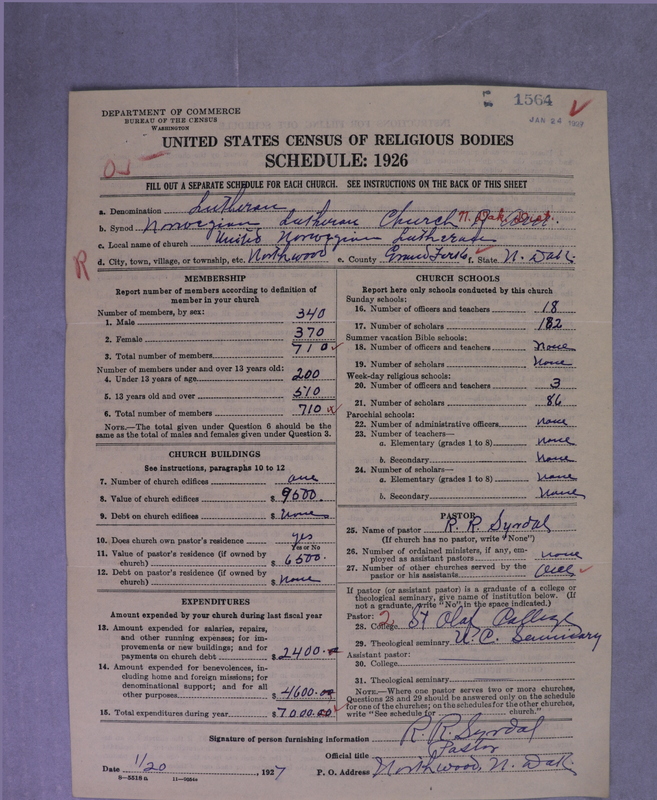 1564
JAN 24 1927
DEPARTMENT OF COMMERCE
BUREAU OF THE CENSUS
WASHINGTON
UNITED STATES CENSUS OF RELIGIOUS BODIES
SCHEDULE: 1926
FILL OUT A SEPARATE SCHEDULE FOR EACH CHURCH. SEE INSTRUCTIONS ON THE BACK OF THIS SHEET
a. Denomination Lutheran
b. Synod Norwegian Lutheran Church N. Dak. Dist.
c. Local name of church United Norwegian Lutheran
R
d. City, town, village, or township, etc. Northwood e. County Grand Forks f. State N. Dak.
MEMBERSHIP
Report number of members according to definition of
member in your church
Number of members, by sex:
1. Male 340
2. Female 370
3. Total number of members 710
Number of members under and over 13 years old:
4. Under 13 years of age 200
5. 13 years old and over 510
6. Total number of members 710
NOTE.—The total given under Question 6 should be
same as the total of males and females given under Question 3.
CHURCH BUILDINGS
See instructions, paragraphs 10 to 12
7. Number of church edifices one
8. Value of church edifices $ 9500.
9. Debt on church edifices $ none
10. Does church own pastor's residence? yes
Yes or No
11. Value of pastor's residence (if owned by
church) $ 6500.
12. Debt on pastor's residence (if owned by
church) $ none
EXPENDITURES
Amount expended by your church during last fiscal year
13. Amount expended for salaries, repairs,
and other running expenses; for im-
provements or new buildings; and for
payments on church debt $ 2400.
14. Amount expended for benevolences, in-
cluding home and foreign missions; for
denominational support; and for all
other purposes $ 4600.00
15. Total expenditures during year $ 7000.00
CHURCH SCHOOLS
Report here only schools conducted by this church
Sunday schools:
16. Number of officers and teachers 18
17. Number of scholars 182
Summer vacation Bible schools:
18. Number of officers and teachers none
19. Number of scholars none
Week-day religious schools:
20. Number of officers and teachers 3
21. Number of scholars 86
Parochial schools:
22. Number of administrative officers none
23. Number of teachers—
a. Elementary (grades 1 to 8) none
b. Secondary none
24. Number of scholars—
a. Elementary (grades 1 to 8) none
b. Secondary none
PASTOR
25. Name of pastor R. R. Syrdal
(If church has no pastor, write "None")
26. Number of ordained ministers, if any, em-
ployed as assistant pastors none
27. Number of other churches served by the
pastor or his assistants one
If pastor (or assistant pastor) is a graduate of a college or
theological seminary, give name of institution below. (If
not a graduate, write "No" in the space indicated.)
Pastor: 2
28. College St Olaf College
29. Theological seminary U.C. Seminary
Assistant pastor:
30. College
31. Theological seminary
NOTE.—Where one pastor serves two or more churches,
Questions 28 and 29 should be answered only on the schedule
for one of the churches; on the schedules for the other churches,
write "See schedule for church."
Signature of person furnishing information R. R. Syrdal
Official title Pastor
Date 1/20, 1927 P. O. Address Northwood, N. Dak.
8-5518 a